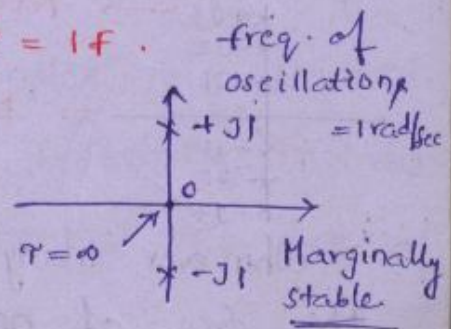 = 1f.
freq. of
oscillation,
= 1 rad/sec
+J1
0
τ=∞
-J1
Marginally
stable.